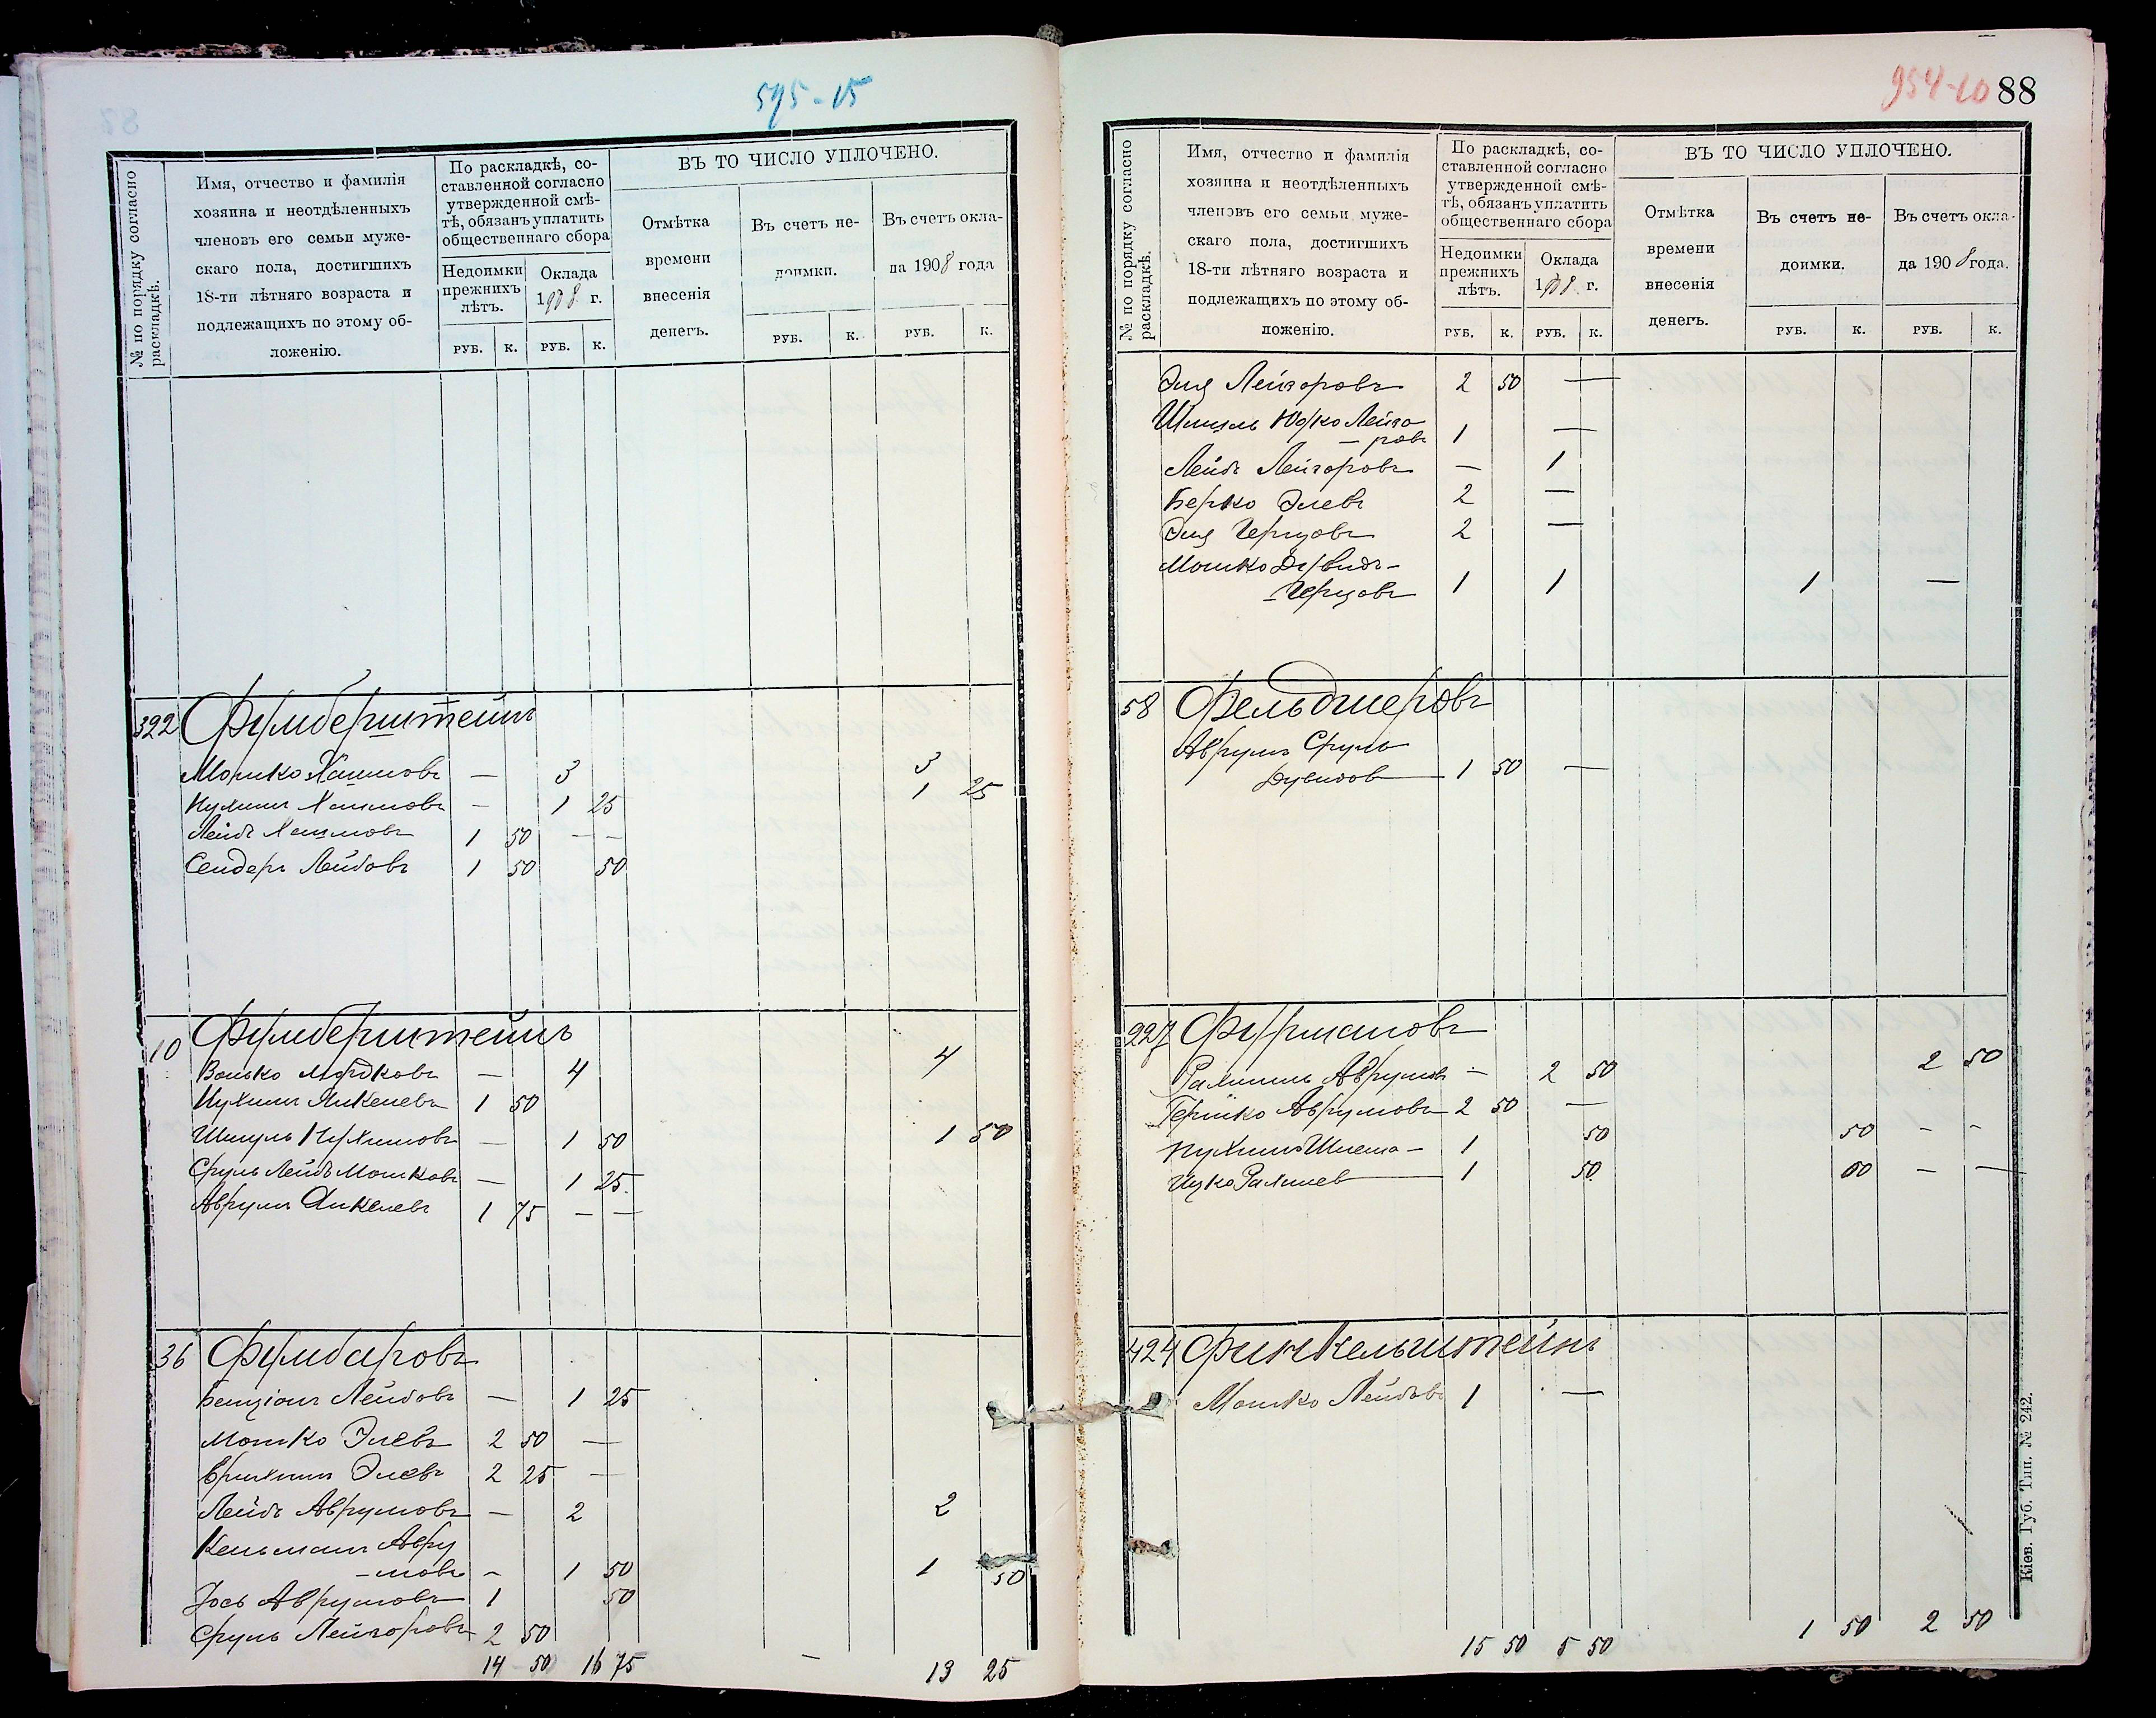 595-15
№ по порядку согласно раскладкѣ.
Имя, отчество и фамилія
хозяина и неотдѣленныхъ
членовъ его семьи муже-
скаго пола, достигшихъ
18-ти лѣтняго возраста и
подлежащихъ по этому об-
ложенію.
По раскладкѣ, со-
ставленной согласно
утвержденной смѣ-
тѣ, обязанъ уплатить
общественнаго сбора
Недоимки прежнихъ лѣтъ.
Оклада 1908 г.
РУБ. К. РУБ. К.
ВЪ ТО ЧИСЛО УПЛОЧЕНО.
Отмѣтка
времени
внесенія
денегъ.
Въ счетъ не-
доимки.
Въ счетъ окла-
да 1908 года
РУБ. К. РУБ. К.
322 Фумберштейнъ
Мошко Хаимовъ — 3 3
Нухимъ Хаимовъ — 1 25 1 25
Лейбъ Хаимовъ 1 50 — —
Сендеръ Лейбовъ 1 50 50
10 Фумберштейнъ
Волько Мордковъ — 4 4
Нухимъ Янкелевъ 1 50
Шмуль Нухимовъ — 1 50 1 50
Сруль Лейбъ Мошковъ — 1 25
Аврумъ Янкелевъ 1 75 — —
36 Фумбаровъ
Бенціонъ Лейбовъ — 1 25
Мошко Элевъ 2 50 —
Элевъ 2 25 —
Лейбъ Аврумовъ — 2 2
Кельманъ Авру
-мовъ - 1 50 1 50
Іось Аврумовъ 1 50
Сруль Лейзоровъ 2 50
14 50 16 75 — 13 25
954-10 88
№ по порядку согласно раскладкѣ.
Имя, отчество и фамилія
хозяина и неотдѣленныхъ
членовъ его семьи муже-
скаго пола, достигшихъ
18-ти лѣтняго возраста и
подлежащихъ по этому об-
ложенію.
По раскладкѣ, со-
ставленной согласно
утвержденной смѣ-
тѣ, обязанъ уплатить
общественнаго сбора
Недоимки прежнихъ лѣтъ.
Оклада 1908 г.
РУБ. К. РУБ. К.
ВЪ ТО ЧИСЛО УПЛОЧЕНО.
Отмѣтка
времени
внесенія
денегъ.
Въ счетъ не-
доимки.
Въ счетъ окла-
да 1908 года.
РУБ. К. РУБ. К.
Эля Лейзоровъ 2 50 —
Шмуль Юдко Лейзо
-ровъ 1 —
Лейбъ Лейзоровъ — 1
Берко Элевъ 2 —
Эля Герцовъ 2 —
Мошко Дувидъ-
-Герцовъ 1 1 1 —
58 Фельдшеровъ
Аврумъ Сруль
Дувидов 1 50 —
227 Фурмановъ
Рахмиль Аврумовъ - 2 50 2 50
Гершко Аврумовъ 2 50 —
Нухимъ - 1 50 50 - -
Ицко Рахмилев 1 50 — —
424 Финкельштейнъ
Мошко Лейбовъ 1 —
15 50 5 50 1 50 2 50
Кіев. Губ. Тип. № 242.